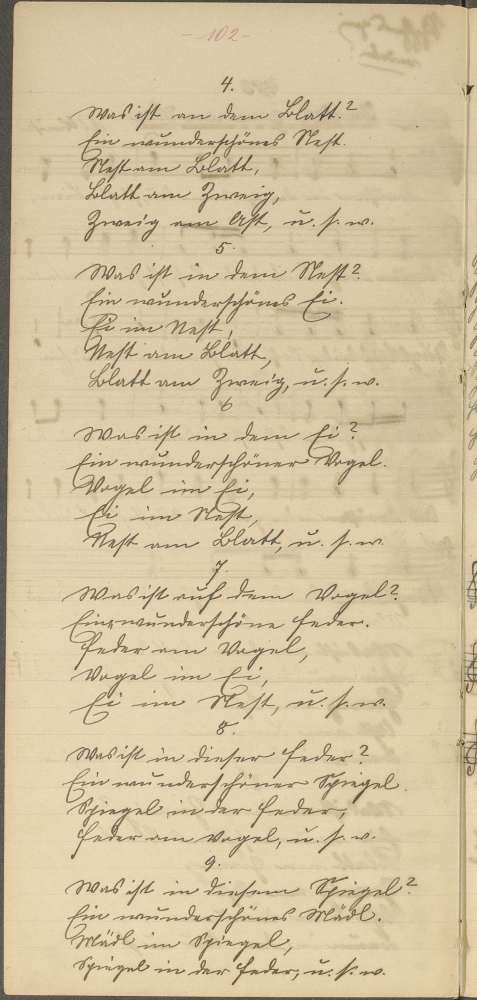 - 102 -
4.
Was ist an dem Blatt?
Ein wunderschönes Nest.
Nest am Blatt,
Blatt am Zweig,
Zweig am Ast, u. s. w.
5.
Was ist in dem Nest?
Ein wunderschönes Ei.
Ei im Nest,
Nest am Blatt,
Blatt am Zweig, u. s. w.
6
Was ist in dem Ei?
Ein wunderschöner Vogel.
Vogel im Ei,
Ei im Nest,
Nest am Blatt, u. s. w
7.
Was ist auf dem Vogel?
Eine wunderschöne Feder.
Feder am Vogel,
Vogel im Ei,
Ei im Nest, u. s. w.
8.
Was ist in dieser Feder?
Ein wunderschöner Spiegel.
Spiegel in der Feder,
Feder am Vogel, u. s. w.
9.
Was ist in diesem Spiegel?
Ein wunderschönes Mädl.
Mädl im Spiegel,
Spiegel in der Feder, u. s. w.